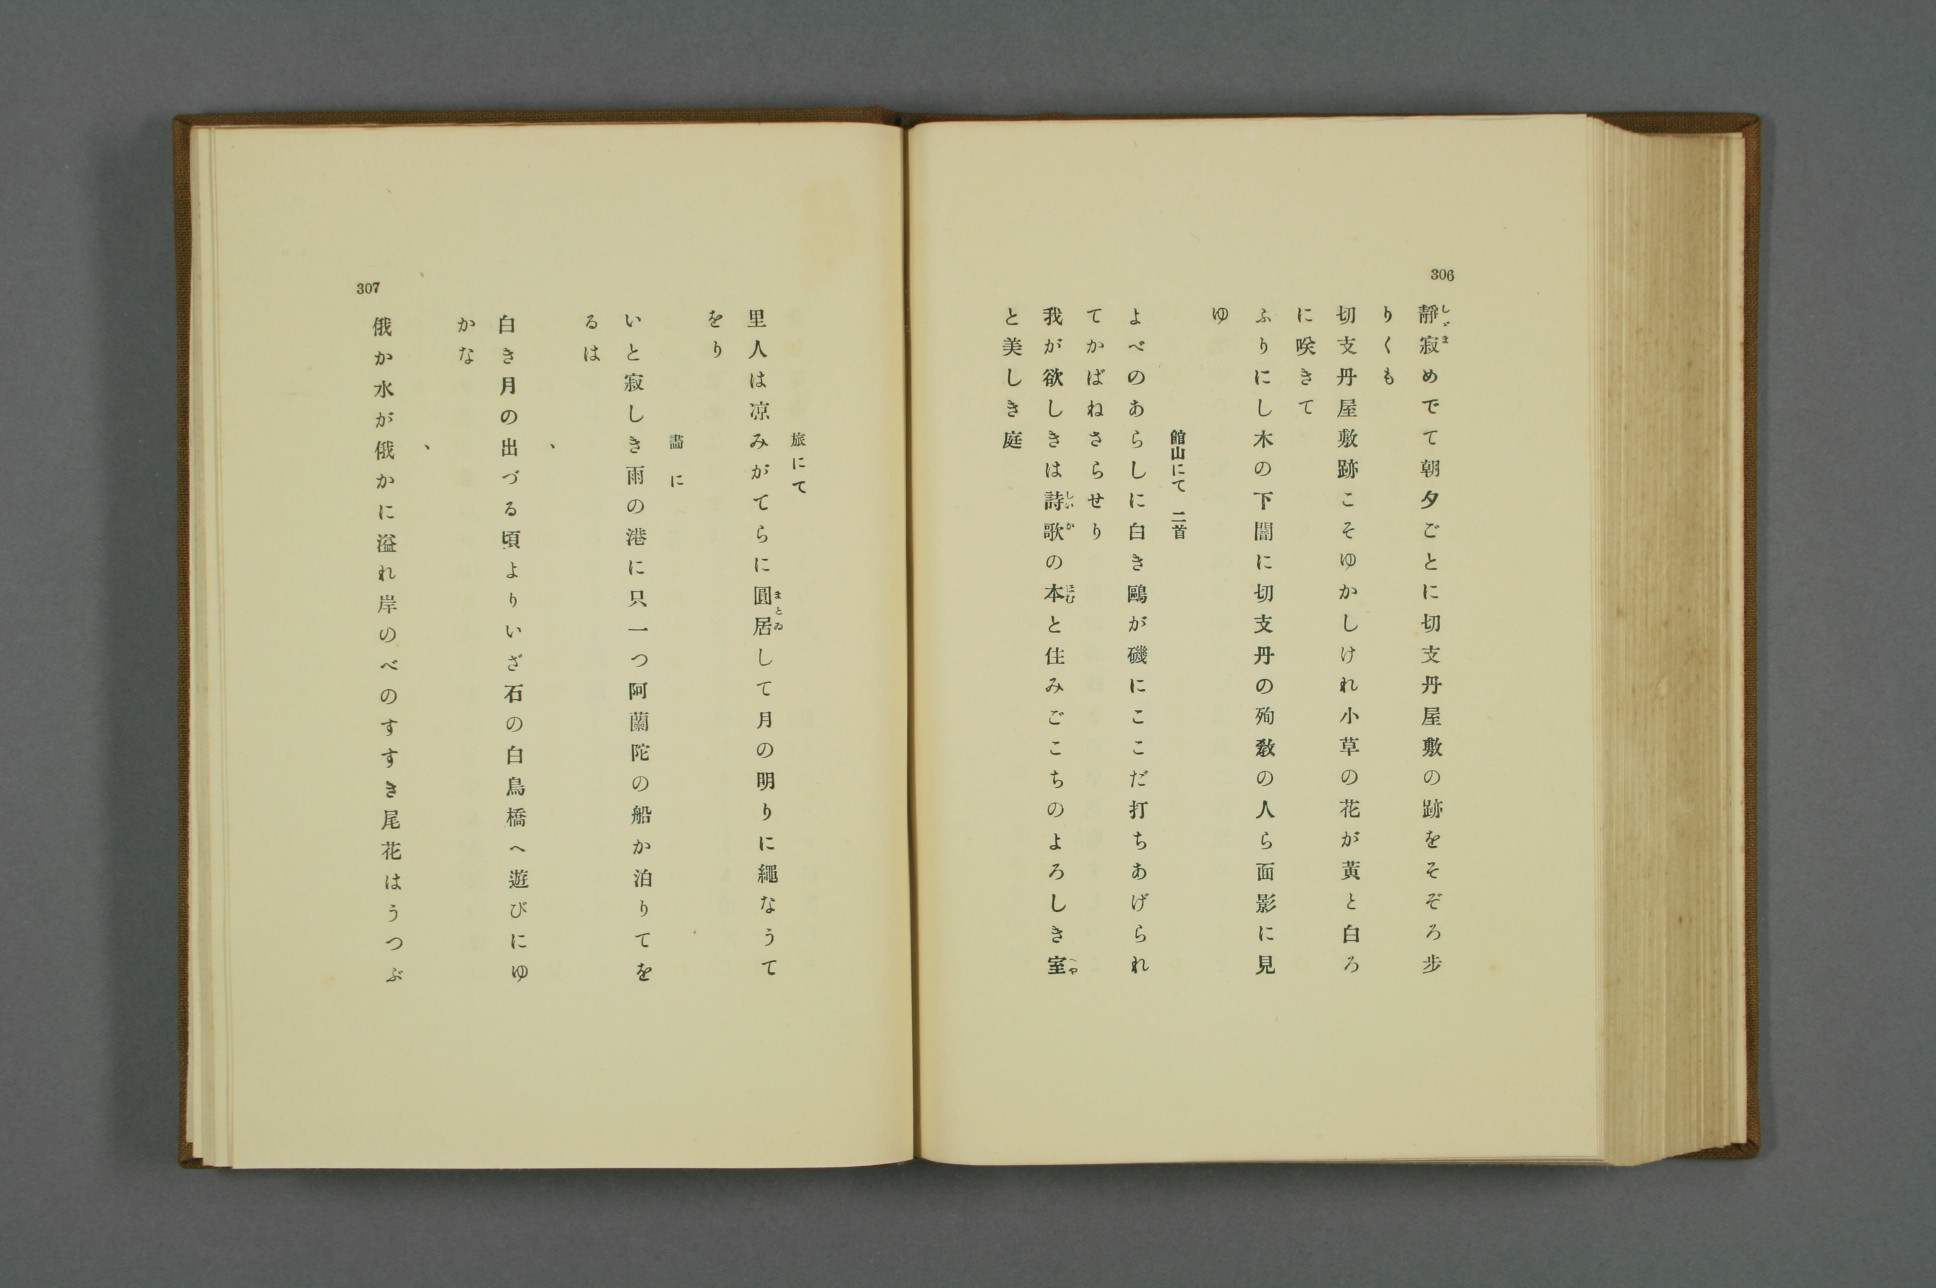 306
靜寂めでて朝夕ごとに切支丹屋敷の跡をそぞろ步
りくも
切支丹屋敷跡こそゆかしけれ小草の花が黃と白ろ
に咲きて
ふりにし木の下闇に切支丹の殉敎の人ら面影に見
ゆ
館山にて 二首
よべのあらしに白き鷗が磯にここだ打ちあげられ
てかばねさらせり
我が欲しきは詩歌の本と住みごこちのよろしき室
と美しき庭
旅にて
里人は凉みがてらに圓居して月の明りに繩なうて
をり
畵に
いと寂しき雨の港に只一つ阿蘭陀の船か泊りてを
るは
、
白き月の出づる頃よりいざ石の白鳥橋へ遊びにゆ
かな
、
俄か水が俄かに溢れ岸のべのすすき尾花はうつぶ
307